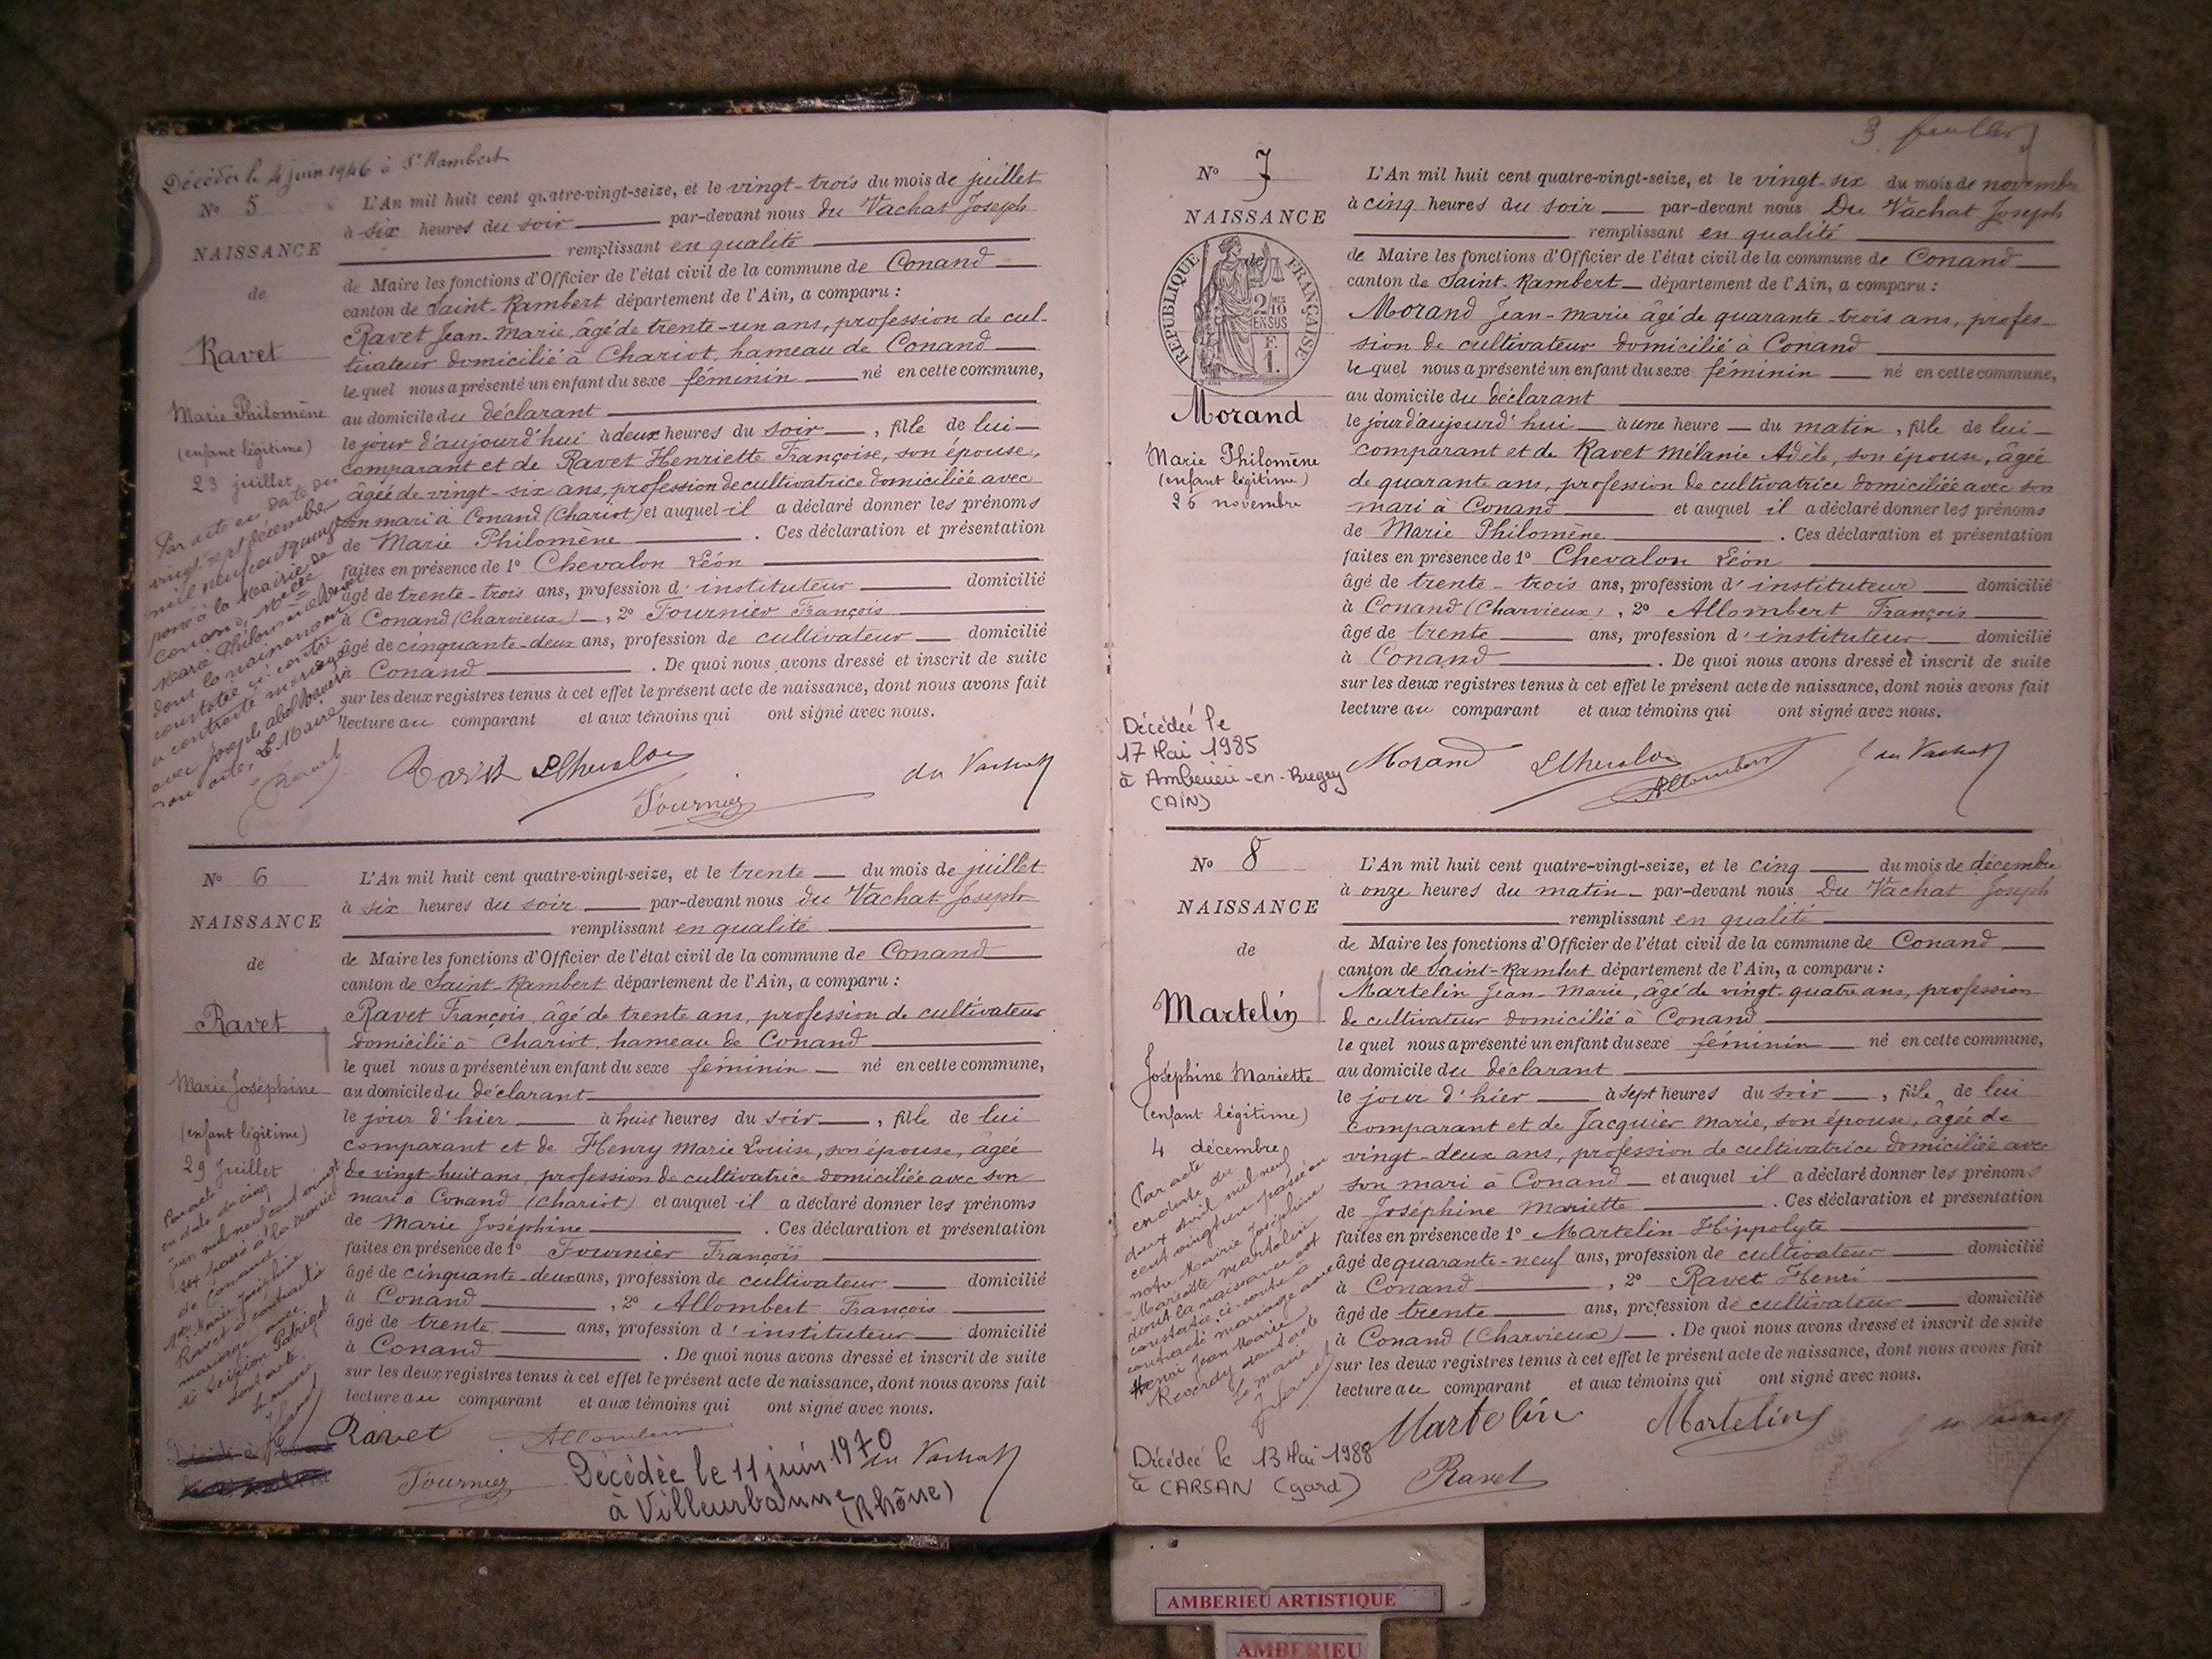 Décédée le 4 juin 1946 à St Rambert
N° 5
NAISSANCE
de
Ravet
Marie Philomène
(enfant légitime)
23 juillet
Par acte en date du
vingt sept décembre
mil neuf cent quinze
passé à la Mairie de
Conand, Melle
Marie Philomène Ravet
dont la naissance
constatée ci-contre
a contracté mariage
avec Joseph Abel
dont acte, Le Maire
Ravet
L'An mil huit cent quatre-vingt-seize, et le vingt-trois du mois de juillet
à six heures du soir par-devant nous du Vachat Joseph
remplissant en qualité
de Maire les fonctions d'Officier de l'état civil de la commune de Conand
canton de Saint-Rambert département de l'Ain, a comparu :
Ravet Jean-Marie, âgé de trente-un ans, profession de cul-
tivateur domicilié à Chariot, hameau de Conand
lequel nous a présenté un enfant du sexe féminin né en cette commune,
au domicile du déclarant
le jour d'aujourd'hui à deux heures du soir, fille de lui
comparant et de Ravet Henriette Françoise, son épouse,
âgée de vingt-six ans, profession de cultivatrice domiciliée avec
son mari à Conand (Chariot) et auquel il a déclaré donner les prénoms
de Marie Philomène. Ces déclaration et présentation
faites en présence de 1° Chevalon Léon
âgé de trente-trois ans, profession d'instituteur domicilié
à Conand (Charvieux), 2° Fournier François
âgé de cinquante-deux ans, profession de cultivateur domicilié
à Conand. De quoi nous avons dressé et inscrit de suite
sur les deux registres tenus à cet effet le présent acte de naissance, dont nous avons fait
lecture au comparant et aux témoins qui ont signé avec nous.
Ravet LChevalon
Fournier
du Vachat
N° 6
NAISSANCE
de
Ravet
Marie Joséphine
(enfant légitime)
29 Juillet
Par acte
en date du cinq
juin mil neuf cent vingt
six passé à la Mairie
de Conand
Melle Marie Joséphine
Ravet a contracté
mariage avec
dont acte
Le Maire
L'An mil huit cent quatre-vingt-seize, et le trente du mois de juillet
à six heures du soir par-devant nous du Vachat Joseph
remplissant en qualité
de Maire les fonctions d'Officier de l'état civil de la commune de Conand
canton de Saint-Rambert département de l'Ain, a comparu :
Ravet François, âgé de trente ans, profession de cultivateur
domicilié à Chariot, hameau de Conand
lequel nous a présenté un enfant du sexe féminin né en cette commune,
au domicile du déclarant
le jour d'hier à huit heures du soir, fille de lui
comparant et de Henry Marie Louise, son épouse, âgée
de vingt-huit ans, profession de cultivatrice domiciliée avec son
mari à Conand (Chariot) et auquel il a déclaré donner les prénoms
de Marie Joséphine. Ces déclaration et présentation
faites en présence de 1° Fournier François
âgé de cinquante-deux ans, profession de cultivateur domicilié
à Conand, 2° Allombert François
âgé de trente ans, profession d'instituteur domicilié
à Conand. De quoi nous avons dressé et inscrit de suite
sur les deux registres tenus à cet effet le présent acte de naissance, dont nous avons fait
lecture au comparant et aux témoins qui ont signé avec nous.
Ravet Allombert
Fournier
du Vachat
Décédée le 11 juin 1970
à Villeurbanne
(Rhône)
3
N° 7
NAISSANCE
de
RÉPUBLIQUE FRANÇAISE
2/10 EN SUS
F. 1.
Morand
Marie Philomène
(enfant légitime)
26 novembre
L'An mil huit cent quatre-vingt-seize, et le vingt-six du mois de novembre
à cinq heures du soir par-devant nous Du Vachat Joseph
remplissant en qualité
de Maire les fonctions d'Officier de l'état civil de la commune de Conand
canton de Saint-Rambert département de l'Ain, a comparu :
Morand Jean-Marie âgé de quarante-trois ans, profes-
sion de cultivateur domicilié à Conand
lequel nous a présenté un enfant du sexe féminin né en cette commune,
au domicile du déclarant
le jour d'aujourd'hui à une heure du matin, fille de lui
comparant et de Ravet Mélanie Adèle, son épouse, âgée
de quarante ans, profession de cultivatrice domiciliée avec son
mari à Conand et auquel il a déclaré donner les prénoms
de Marie Philomène. Ces déclaration et présentation
faites en présence de 1° Chevalon Léon
âgé de trente-trois ans, profession d'instituteur domicilié
à Conand (Charvieux), 2° Allombert François
âgé de trente ans, profession d'instituteur domicilié
à Conand. De quoi nous avons dressé et inscrit de suite
sur les deux registres tenus à cet effet le présent acte de naissance, dont nous avons fait
lecture au comparant et aux témoins qui ont signé avec nous.
Décédée le
17 Mai 1985
à Ambérieu-en-Bugey
(AIN)
Morand LChevalon
Allombert
du Vachat
N° 8
NAISSANCE
de
Martelin
Joséphine Mariette
(enfant légitime)
4 décembre
Par acte
en date du
deux Avril mil neuf
cent vingt un passé en
notre Mairie Joséphine
Mariette Martelin
dont la naissance est
constatée ci-contre a
contracté mariage avec
Henri Jean Marie
Reverdy dont acte
Le maire
L'An mil huit cent quatre-vingt-seize, et le cinq du mois de décembre
à onze heures du matin par-devant nous Du Vachat Joseph
remplissant en qualité
de Maire les fonctions d'Officier de l'état civil de la commune de Conand
canton de Saint-Rambert département de l'Ain, a comparu :
Martelin Jean-Marie, âgé de vingt-quatre ans, profession
de cultivateur domicilié à Conand
lequel nous a présenté un enfant du sexe féminin né en cette commune,
au domicile du déclarant
le jour d'hier à sept heures du soir, fille de lui
comparant et de Jacquier Marie, son épouse, âgée de
vingt-deux ans, profession de cultivatrice domiciliée avec
son mari à Conand et auquel il a déclaré donner les prénoms
de Joséphine Mariette. Ces déclaration et présentation
faites en présence de 1° Martelin Hippolyte
âgé de quarante-neuf ans, profession de cultivateur domicilié
à Conand, 2° Ravet Henri
âgé de trente ans, profession de cultivateur domicilié
à Conand (Charvieux). De quoi nous avons dressé et inscrit de suite
sur les deux registres tenus à cet effet le présent acte de naissance, dont nous avons fait
lecture au comparant et aux témoins qui ont signé avec nous.
Martelin Martelin
Ravet
Décédée le 13 Mai 1988
à CARSAN (gard)
AMBERIEU ARTISTIQUE
AMBERIEU